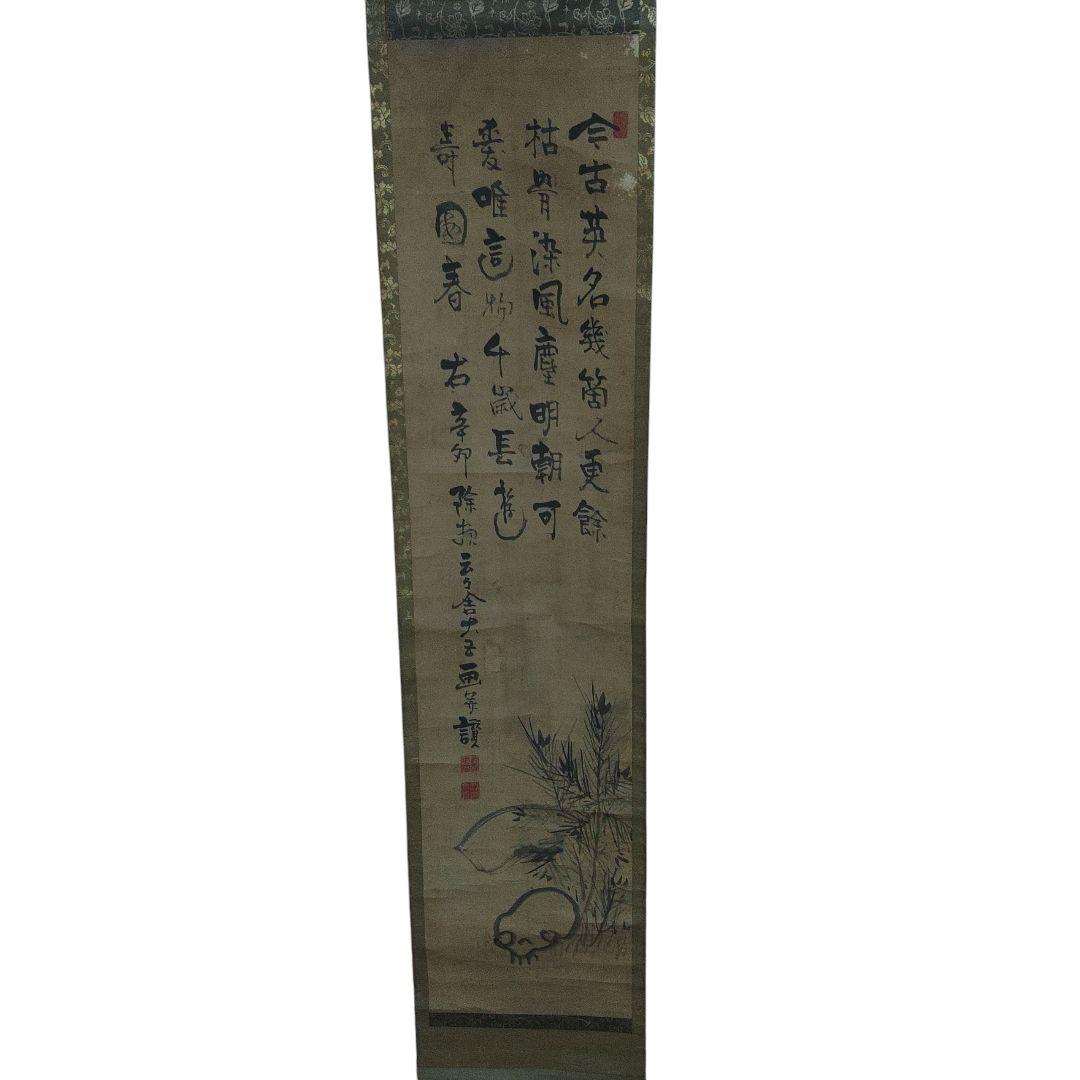 今古英名幾箇人更餘
枯骨染風塵明朝可
愛唯這物千歳長
壽圖春 右辛卯除 舍 画并讃